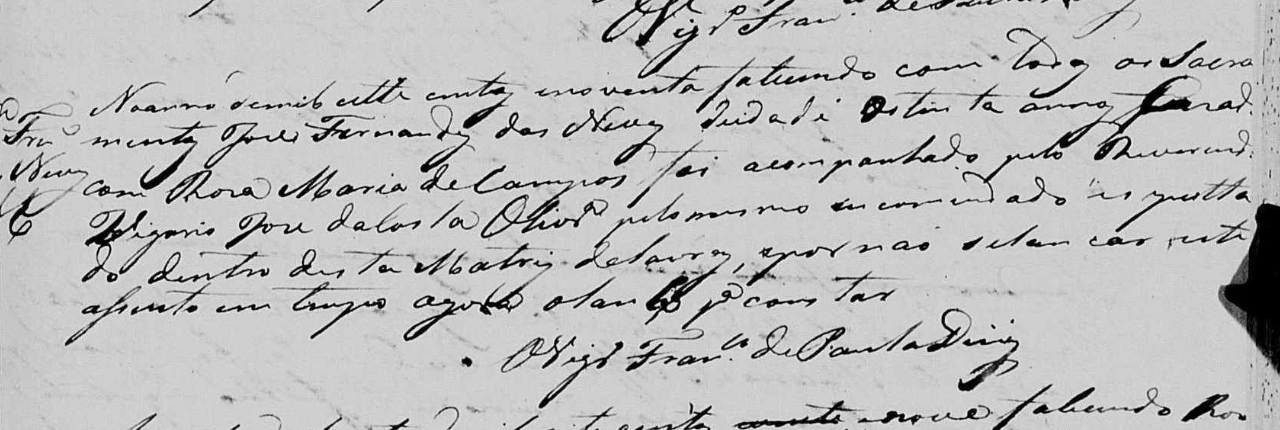 O Vigr.º Fran.co de Paula
No anno de mil cette centos e noventa faleceudo com todos os Sacra
mentos Joze Fernandes das Neves de idade de oitenta annos Cazad.
com Rosa Maria de Campos foi acompanhado pelo Reverend.
Vigario Joze da Costa Olivr.ª pelo mesmo encomendado e sepulta
do dentro desta Matriz de Lavras, e por naõ se lancar este
assento em tempo agora o lancço p.ª constar
O Vigr.º Fran.co de Paula Diniz
nove faleceudo
Frz
Neves
C